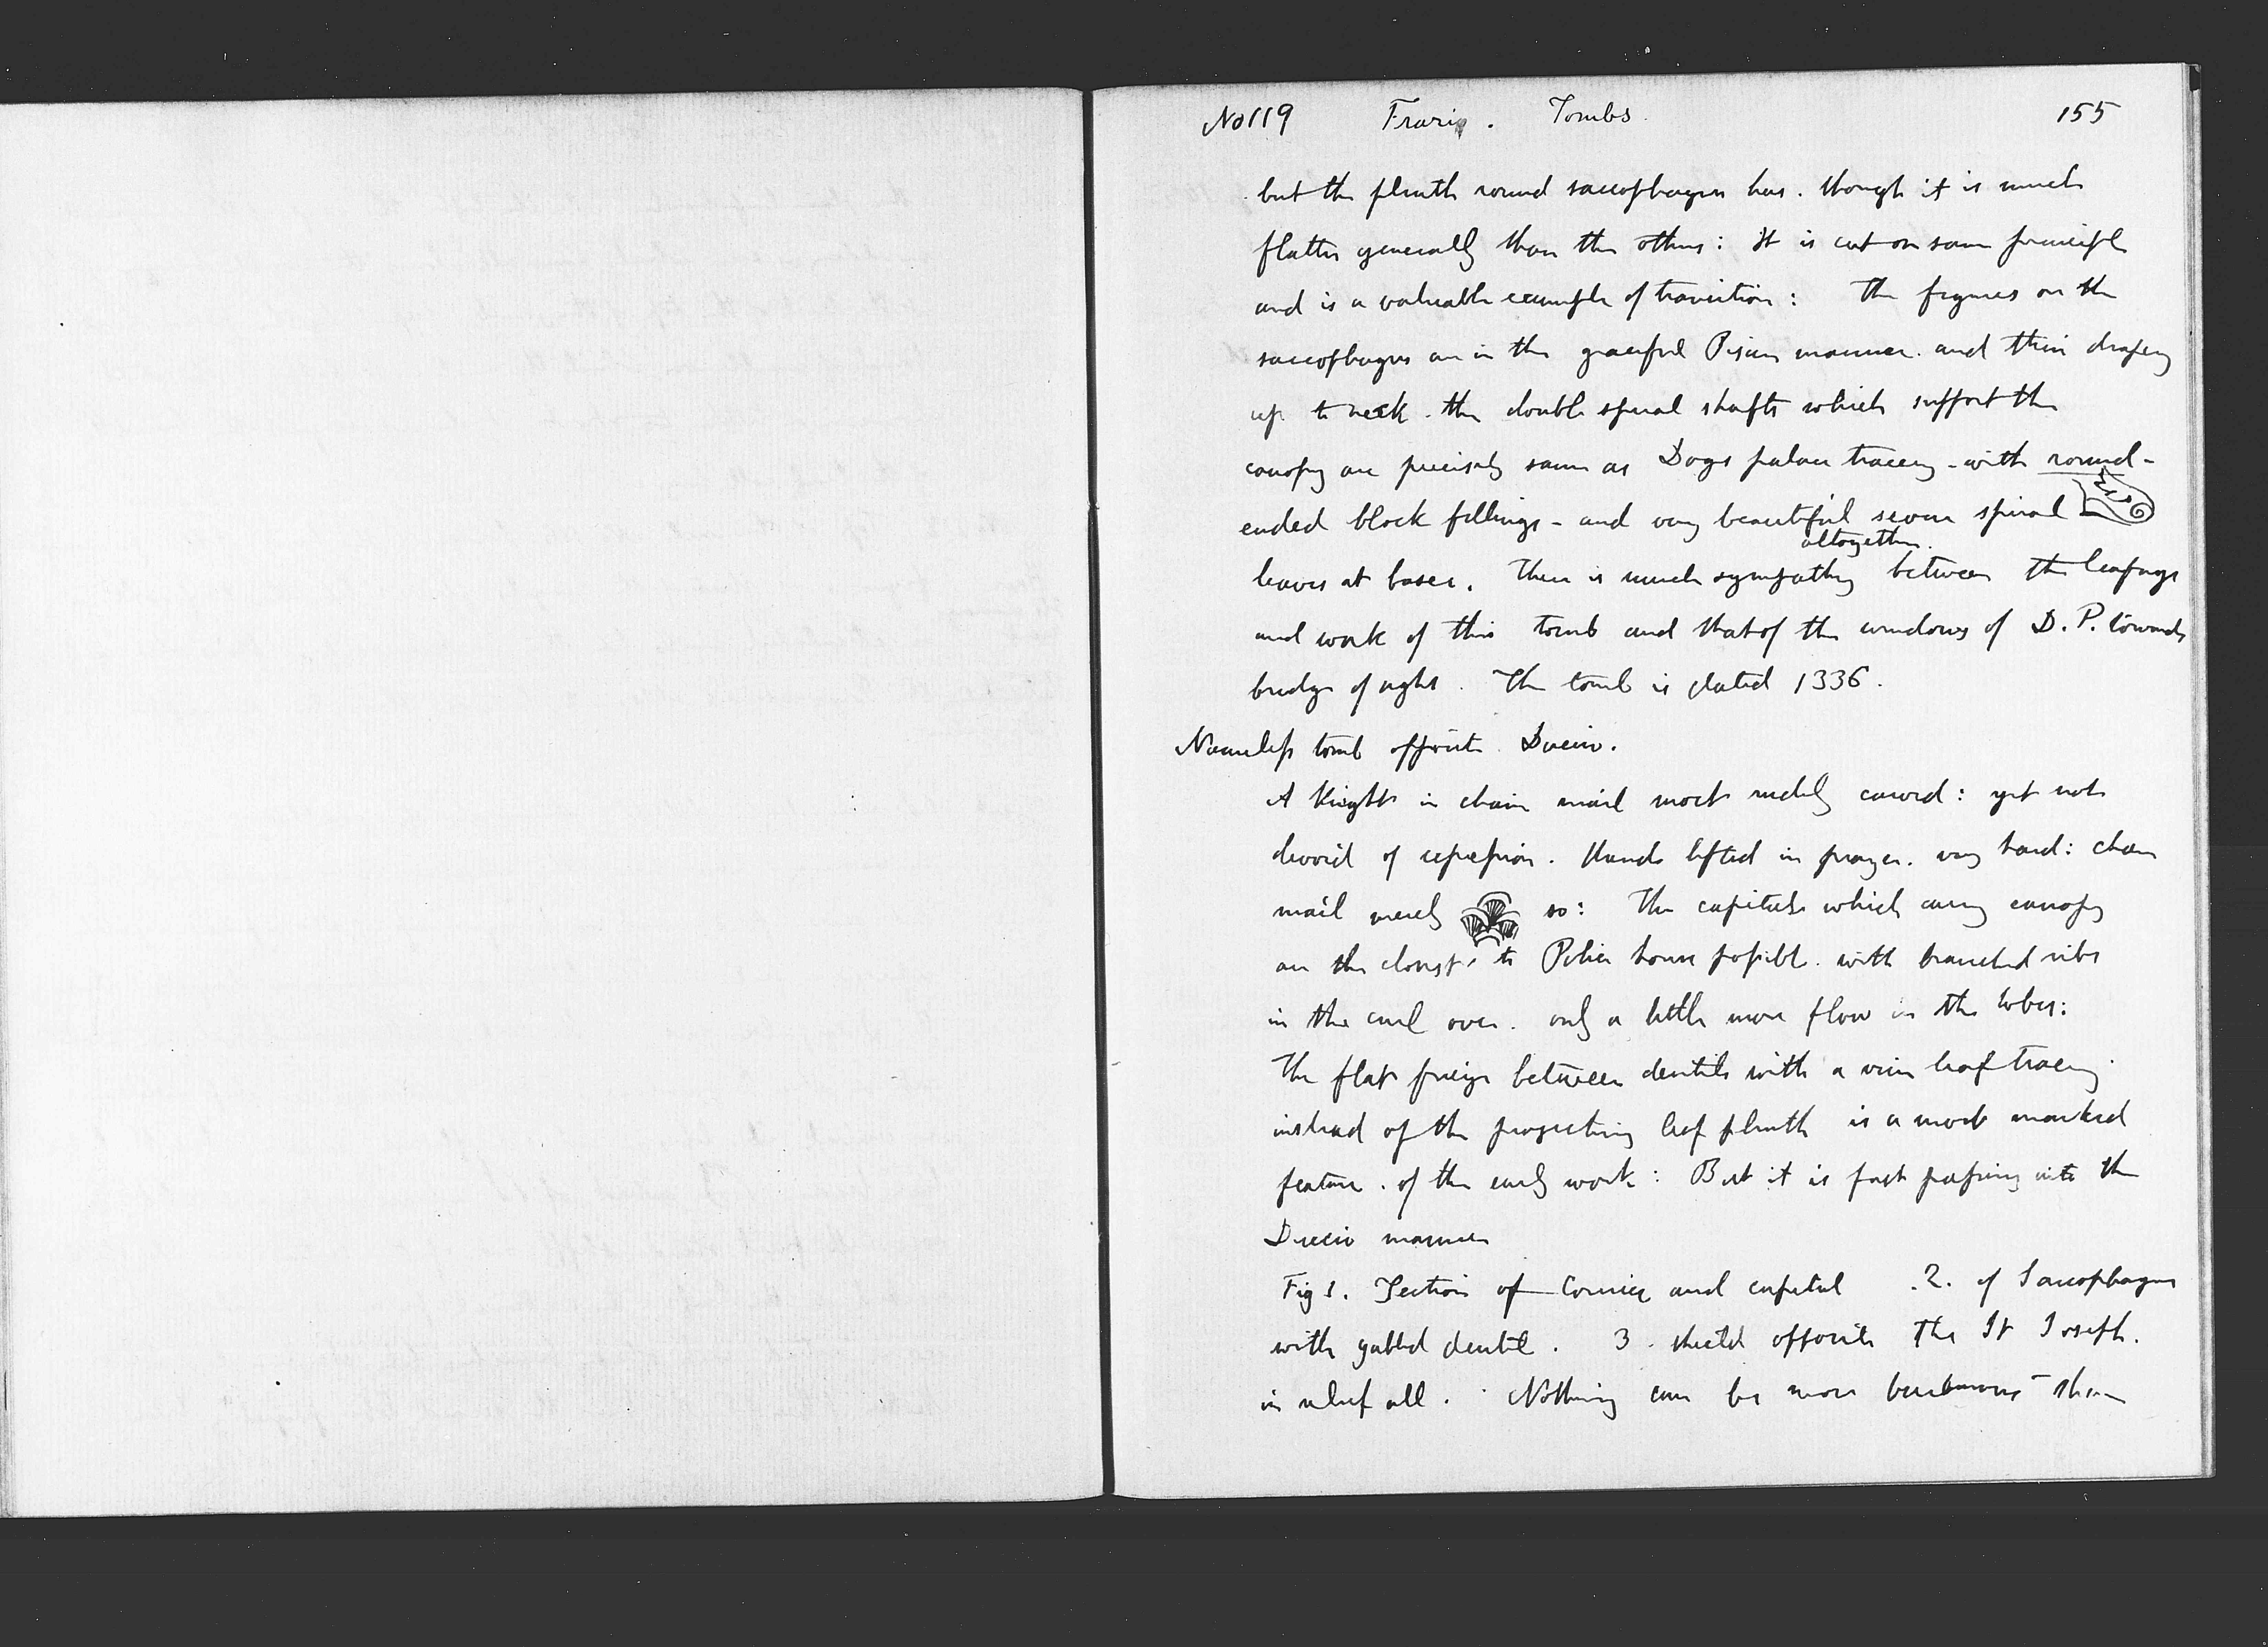 No 119 Frari. Tombs. 155
but the plinth round sarcophagus has. though it is much
flatter generally than the others: it is cut on same principle
and is a valuable example of transition: The figures on the
sarcophagus are in the graceful Pisan manner. and their drapery
up to neck. the double spiral shafts which support the
canopy are precisely same as Doges palace tracery - with round-
ended block fillings - and very beautiful severe spiral
altogether.
leaves at bases. There is much sympathy between the leafage
and work of this tomb and that of the windows of D. P. towards
bridge of sighs. The tomb is dated 1336.
Nameless tomb opposite Duccio.
A Knight in chain mail most rudely carved: yet not
devoid of expression. Hands lifted in prayer. very hard: chain
mail merely so: The capitals which carry canopy
are the closest to Police house possible. with branched ribs
in the curl over. only a little more flow in the lobes:
The flat frieze between dentils with a vine leaf tracery
instead of the projecting leaf plinth is a most marked
feature. of the early work: But it is fast passing into the
Duccio manner
Fig 1. Section of Cornice and capital .2. of Sarcophagus
with gabled dentil. 3. shield opposite the St Joseph.
in relief all. Nothing can be more barbarous than